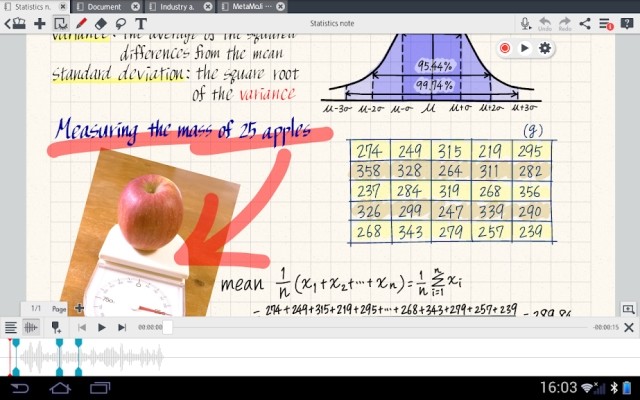 Statistics n.
Document
Industry a.
MetaMoJi ...
Statistics note
Undo
Redo
variance: the average of the squared
differences from the mean
Standard deviation: the square root
of the variance
95.44%
99.74%
μ-3σ μ-2σ μ-σ μ μ+σ μ+2σ μ+3σ
Measuring the mass of 25 apples
(g)
274 249 315 219 295
358 328 264 311 282
237 284 319 268 356
326 299 247 339 290
268 343 279 257 239
mean 1/n (x₁+x₂+⋯+xₙ) = 1/n Σⁿᵢ₌₁ xᵢ
274+249+315+219+295+⋯+268+343+279+257+239
1/1 Page
00:00:00
-00:00:15
16:03